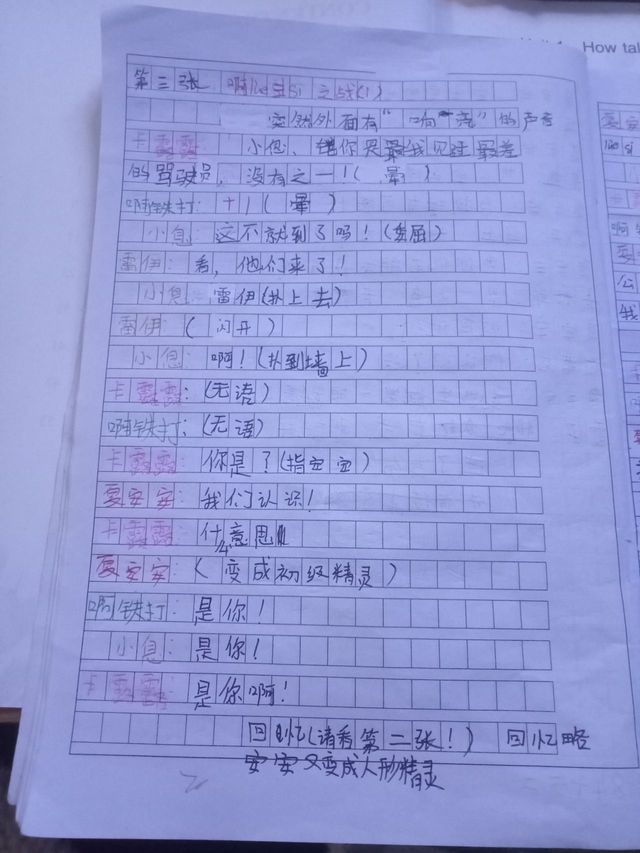 How tal
第三张 啊 之战(1)
突然外面有"响亮"的声音
卡露露 小息、你是最我见过最差
的驾驶员，没有之一！(晕)
啊铁打：十1(晕)
小息：这不就到了吗！(委屈)
雷伊：看，他们来了！
小息：雷伊(扑上去)
雷伊：(闪开)
小息：啊！(扑到墙上)
卡露露：(无语)
啊铁打：(无语)
卡露露：你是？(指安安)
夏安安：我们认识！
卡露露：什么意思
夏安安：(变成初级精灵)
啊铁打：是你！
小息：是你！
卡露露：是你啊！
回忆(请看第二张！) 回忆略
安安又变成人形精灵